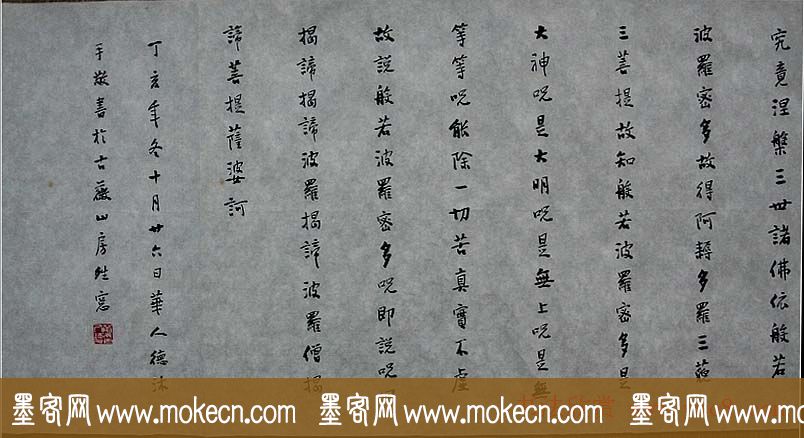 究竟涅槃三世諸佛依般若
波羅密多故得阿耨多羅三藐
三菩提故知般若波羅密多是
大神呪是大明呪是無上呪是無
等等呪能除一切苦真實不虛
故說般若波羅密多呪即說呪
揭諦揭諦波羅揭諦波羅僧揭
諦菩提薩婆訶
丁亥年冬十月廿六日華人德沐
手敬書於古薇山房窓
墨客网 www.mokecn.com 墨客网 www.mokecn.com